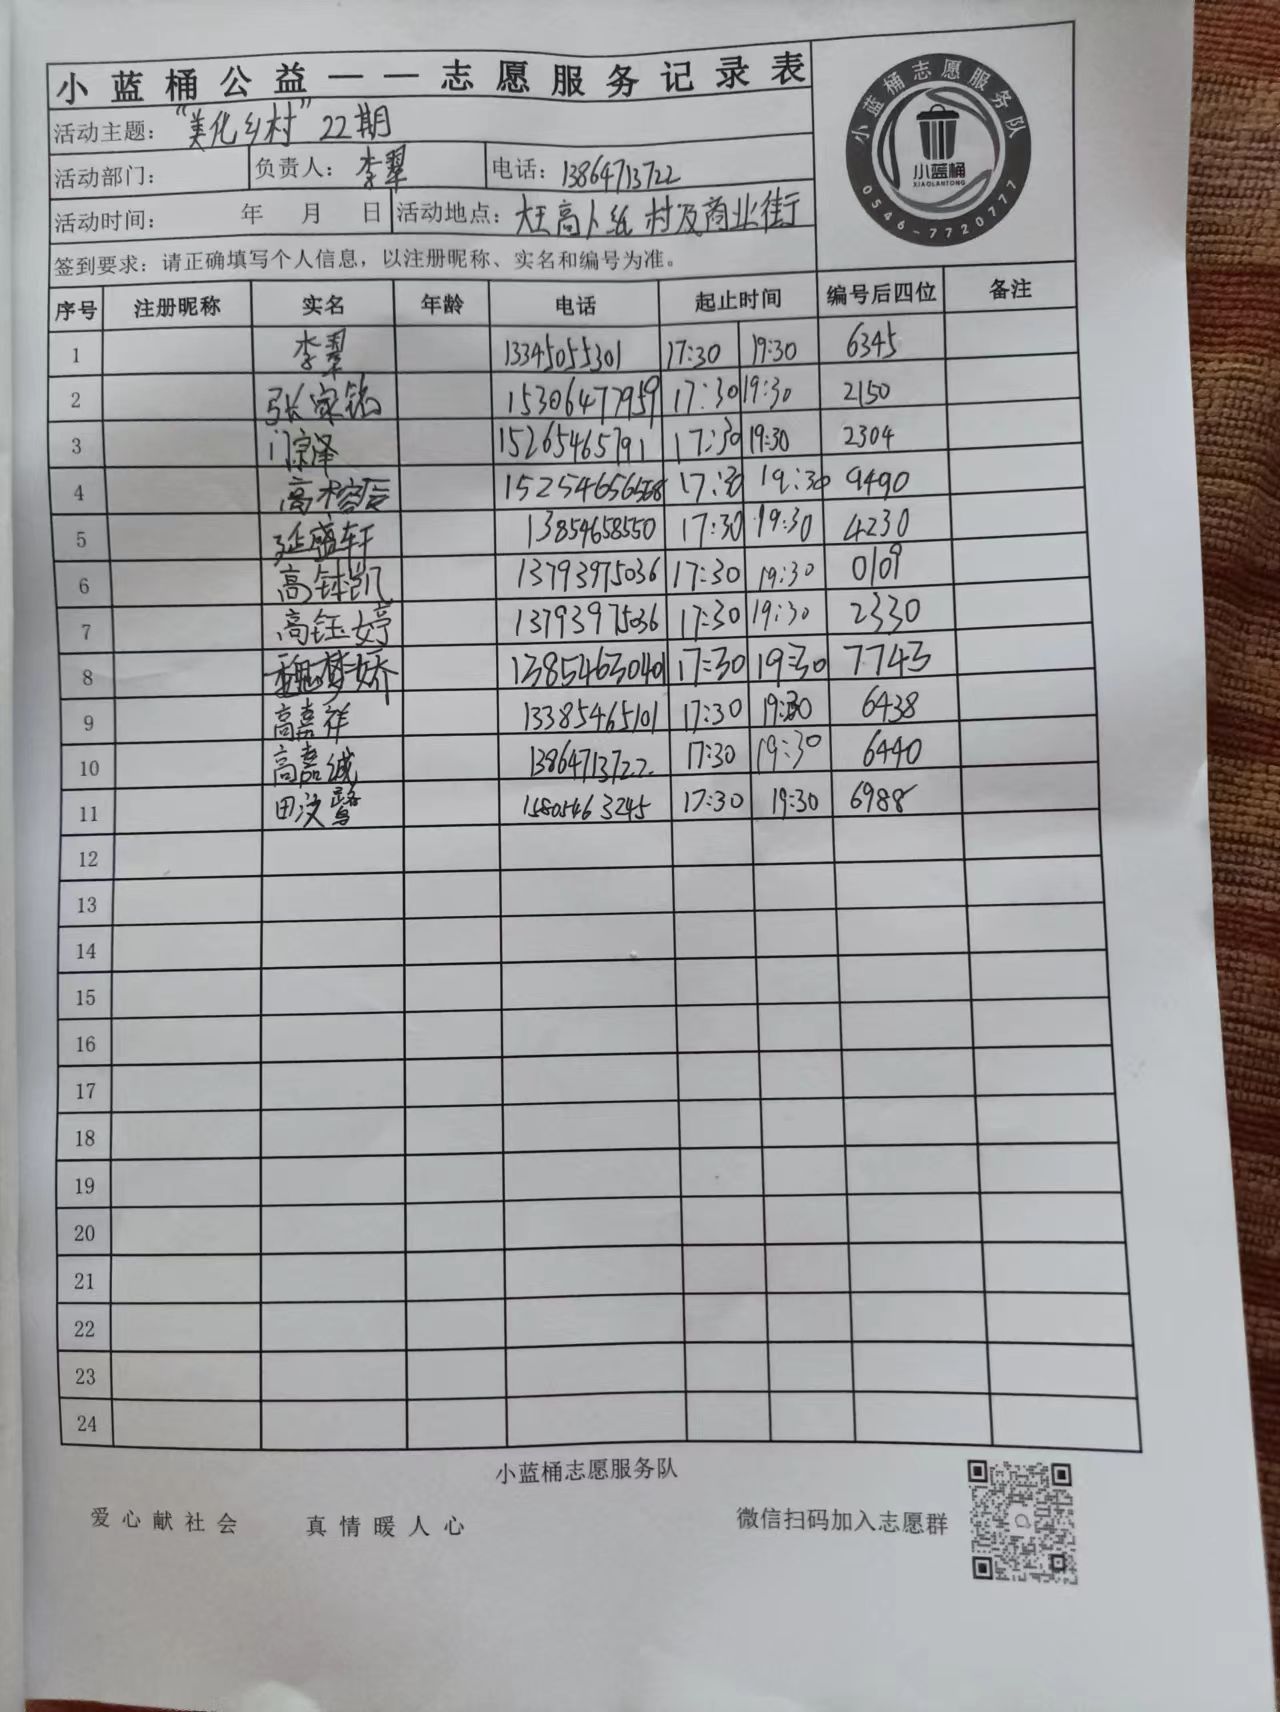 小蓝桶公益——志愿服务记录表
活动主题：“美化乡村”22期
活动部门： 负责人：李翠 电话：13864713722
活动时间： 年 月 日 活动地点：大王高卜纸村及商业街
签到要求：请正确填写个人信息，以注册昵称、实名和编号为准。
小蓝桶志愿服务队
小蓝桶
XIAOLANTONG
0546-7720777
序号 注册昵称 实名 年龄 电话 起止时间 编号后四位 备注
1 李翠 13345055301 17:30 19:30 6345
2 张家铭 15306477959 17:30 19:30 2150
3 门宗泽 15265465791 17:30 19:30 2304
4 高 17:30 19:30 9490
5 延盛轩 13854658550 17:30 19:30 4230
6 高钵凯 13793975036 17:30 19:30 0109
7 高钰婷 13793975036 17:30 19:30 2330
8 魏梦娇 13854630401 17:30 19:30 7743
9 高嘉祥 13385465101 17:30 19:30 6438
10 高嘉诚 13864713722 17:30 19:30 6440
11 田汶鹭 15805463245 17:30 19:30 6988
12
13
14
15
16
17
18
19
20
21
22
23
24
小蓝桶志愿服务队
爱心献社会 真情暖人心 微信扫码加入志愿群